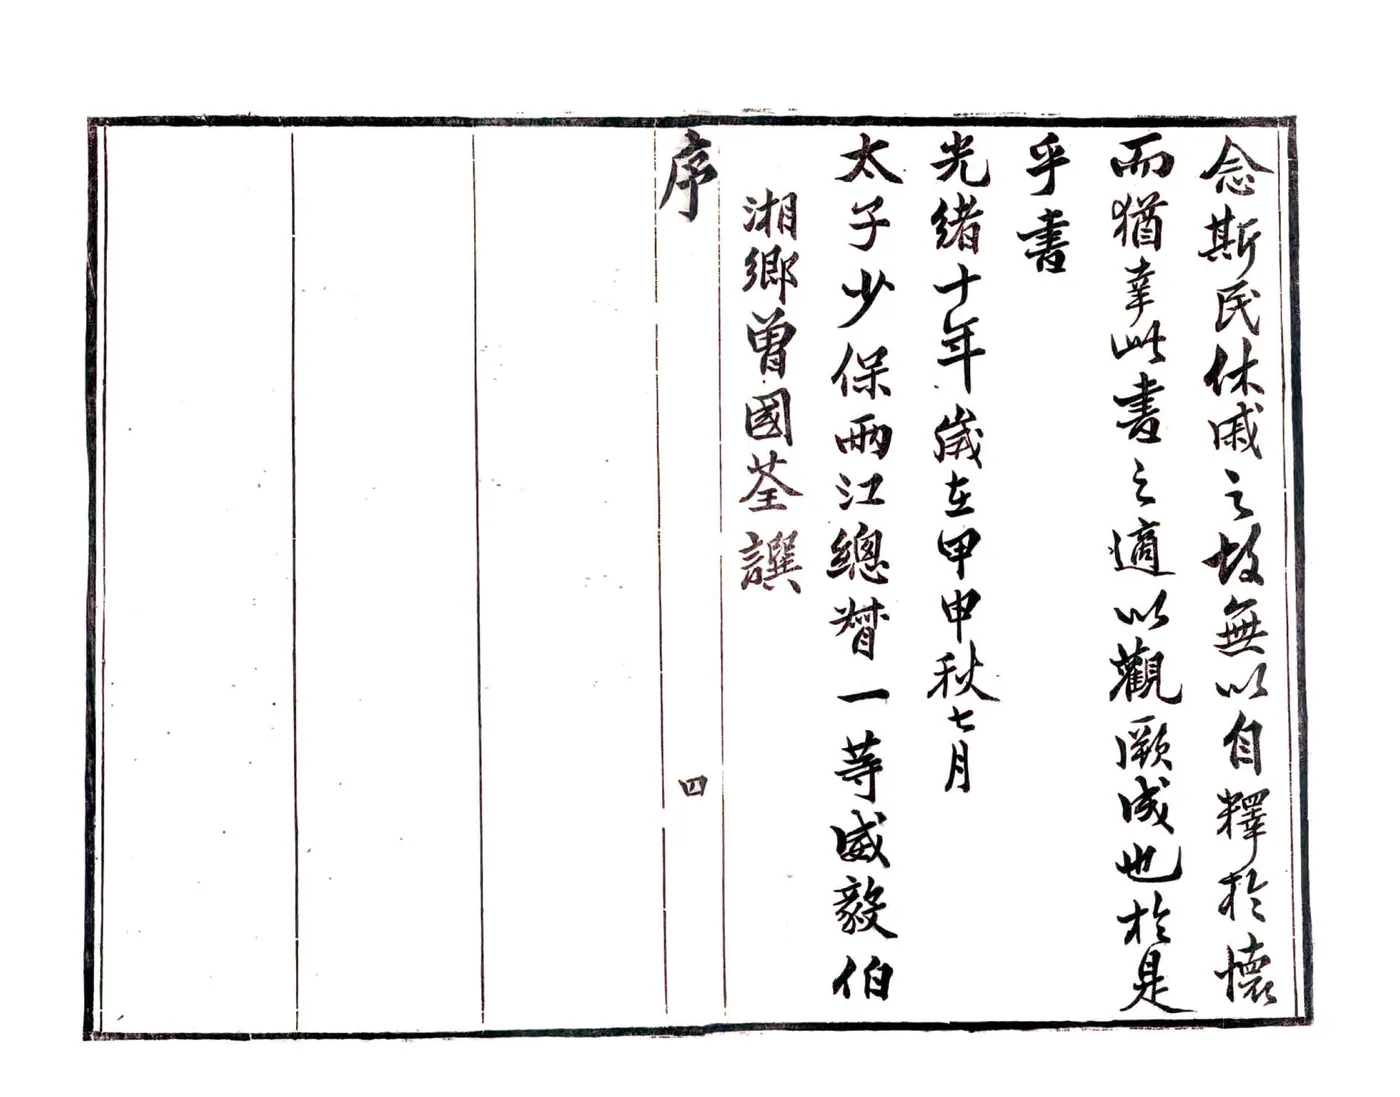 念斯民休戚之故無以自釋於懷
而猶幸此書之適以觀厥成也於是
乎書
光緒十年歲在甲申秋七月
太子少保兩江總督一等威毅伯
湘鄉曾國荃譔
序
四